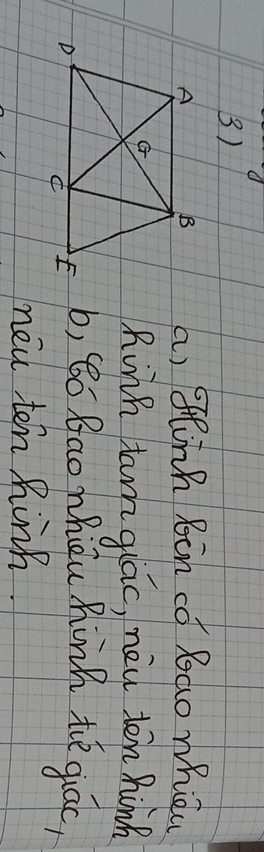 3)
A
B
G
D
C
E
a, Hình bên có bao nhiêu
hình tam giác, nêu tên hình
b, Có bao nhiêu hình tứ giác,
nêu tên hình.